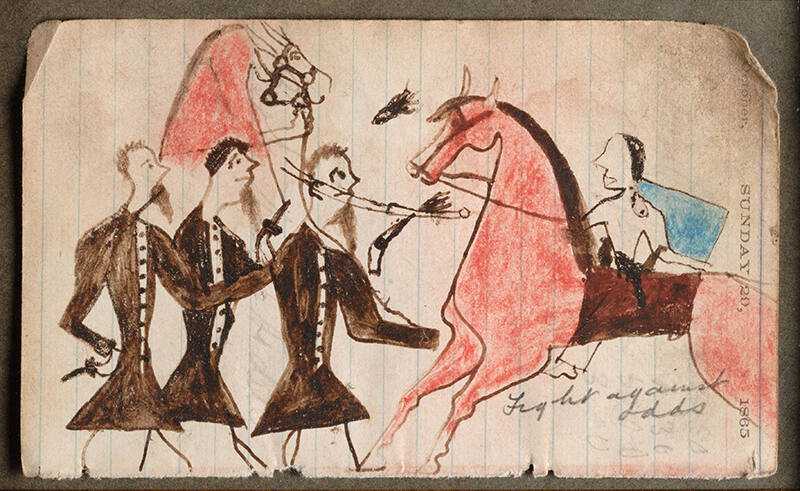 Fight against
odds
SUNDAY 29,
1865